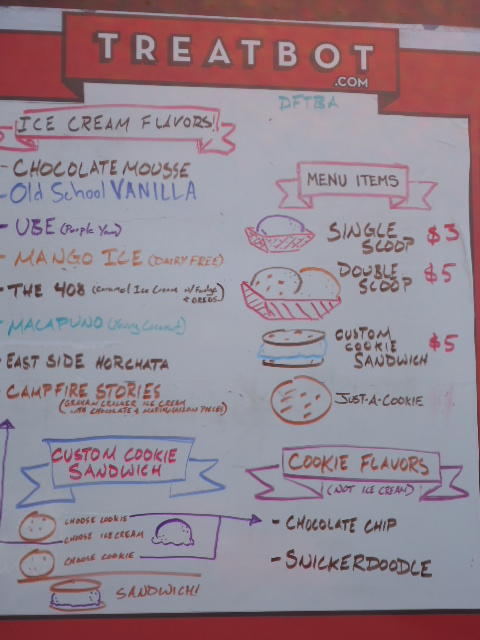 TREATBOT
.COM
DFTBA
ICE CREAM FLAVORS!
- CHOCOLATE MOUSSE
- Old School VANILLA
- UBE (Purple Yam)
- MANGO ICE (DAIRY FREE)
- THE 408 (Caramel Ice Cream w/ Fudge
+ OREOS)
- MACAPUNO (Young Coconut)
- EAST SIDE HORCHATA
- CAMPFIRE STORIES
(GRAHAM CRACKER ICE CREAM
WITH CHOCOLATE & MARSHMALLOW PIECES)
MENU ITEMS
SINGLE
SCOOP $3
DOUBLE
SCOOP $5
CUSTOM
COOKIE
SANDWICH $5
JUST-A-COOKIE
CUSTOM COOKIE
SANDWICH
CHOOSE COOKIE
CHOOSE ICE CREAM
CHOOSE COOKIE
SANDWICH!
COOKIE FLAVORS
(NOT ICE CREAM)
- CHOCOLATE CHIP
- SNICKERDOODLE